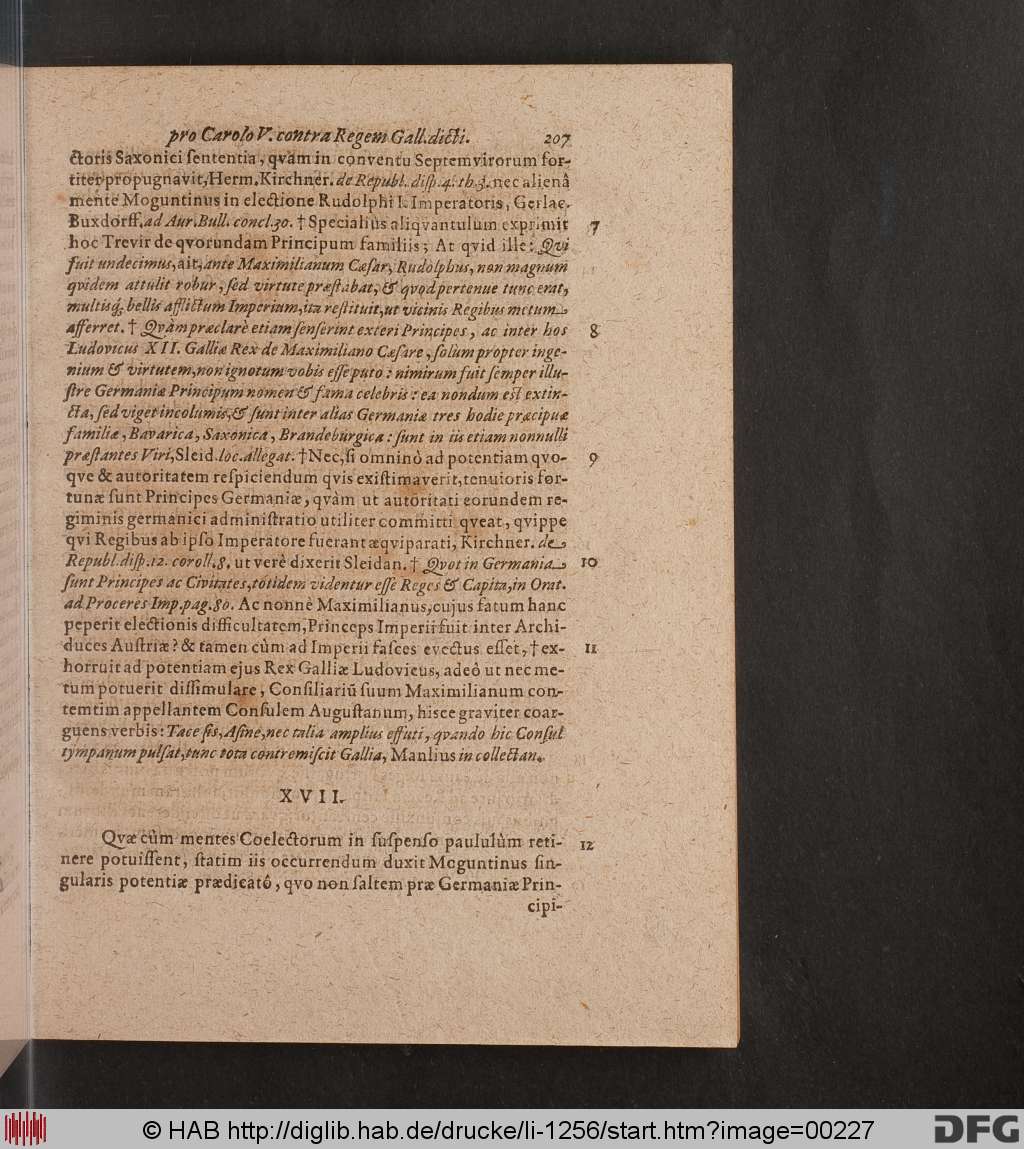 pro Carolo V. contra Regem Gall. dicti. 207
ctoris Saxonici ſententia, qvam in conventu Septemvirorum for-
titer propugnavit, Herm. Kirchner. de Republ. diſp. 4. th. 3. nec alienâ
mente Moguntinus in electione Rudolphi I. Imperatoris, Gerlac.
Buxdorff. ad Aur. Bull. concl. 30. † Specialiùs aliqvantulum exprimit 7
hoc Trevir de qvorundam Principum familiis; At qvid ille: Qvi
fuit undecimus, ait, ante Maximilianum Cæſar, Rudolphus, non magnum
qvidem attulit robur, ſed virtute præſtabat, & qvod pertenue tunc erat,
multisq́; bellis afflictum Imperium, ita reſtituit, ut vicinis Regibus metum
afferret. † Qvàm præclarè etiam ſenſerint exteri Principes, ac inter hos 8
Ludovicus XII. Galliæ Rex de Maximiliano Cæſare, ſolùm propter inge-
nium & virtutem, non ignotum vobis eſſe puto: nimirum fuit ſemper illu-
ſtre Germaniæ Principum nomen & fama celebris: ea nondum eſt extin-
cta, ſed viget incolumis, & ſunt inter alias Germaniæ tres hodie præcipuæ
familiæ, Bavarica, Saxonica, Brandeburgica: ſunt in iis etiam nonnulli
præſtantes Viri, Sleid. loc. allegat. † Nec, ſi omninò ad potentiam qvo- 9
qve & autoritatem reſpiciendum qvis exiſtimaverit, tenuioris for-
tunæ ſunt Principes Germaniæ, qvàm ut autoritati eorundem re-
giminis germanici adminiſtratio utiliter committi qveat, qvippe
qvi Regibus ab ipſo Imperatore fuerant æqviparati, Kirchner. de
Republ. diſp. 12. coroll. 8. ut verè dixerit Sleidan. † Qvot in Germania 10
ſunt Principes ac Civitates, totidem videntur eſſe Reges & Capita, in Orat.
ad Proceres Imp. pag. 80. Ac nonnè Maximilianus, cujus fatum hanc
peperit electionis difficultatem, Princeps Imperii fuit inter Archi-
duces Auſtriæ? & tamen cùm ad Imperii faſces evectus eſſet, † ex- 11
horruit ad potentiam ejus Rex Galliæ Ludovicus, adeò ut nec me-
tum potuerit diſſimulare, Conſiliariũ ſuum Maximilianum con-
temtim appellantem Conſulem Auguſtanum, hisce graviter coar-
guens verbis: Tace ſis, Aſine, nec talia amplius effuti, qvando hic Conſul
tympanum pulſat, tunc tota contremiſcit Gallia, Manlius in collectan.
XVII.
Qvæ cùm mentes Coelectorum in ſuſpenſo paululùm reti- 12
nere potuiſſent, ſtatim iis occurrendum duxit Moguntinus ſin-
gularis potentiæ prædicatô, qvo non ſaltem præ Germaniæ Prin-
cipi-
© HAB http://diglib.hab.de/drucke/li-1256/start.htm?image=00227
DFG